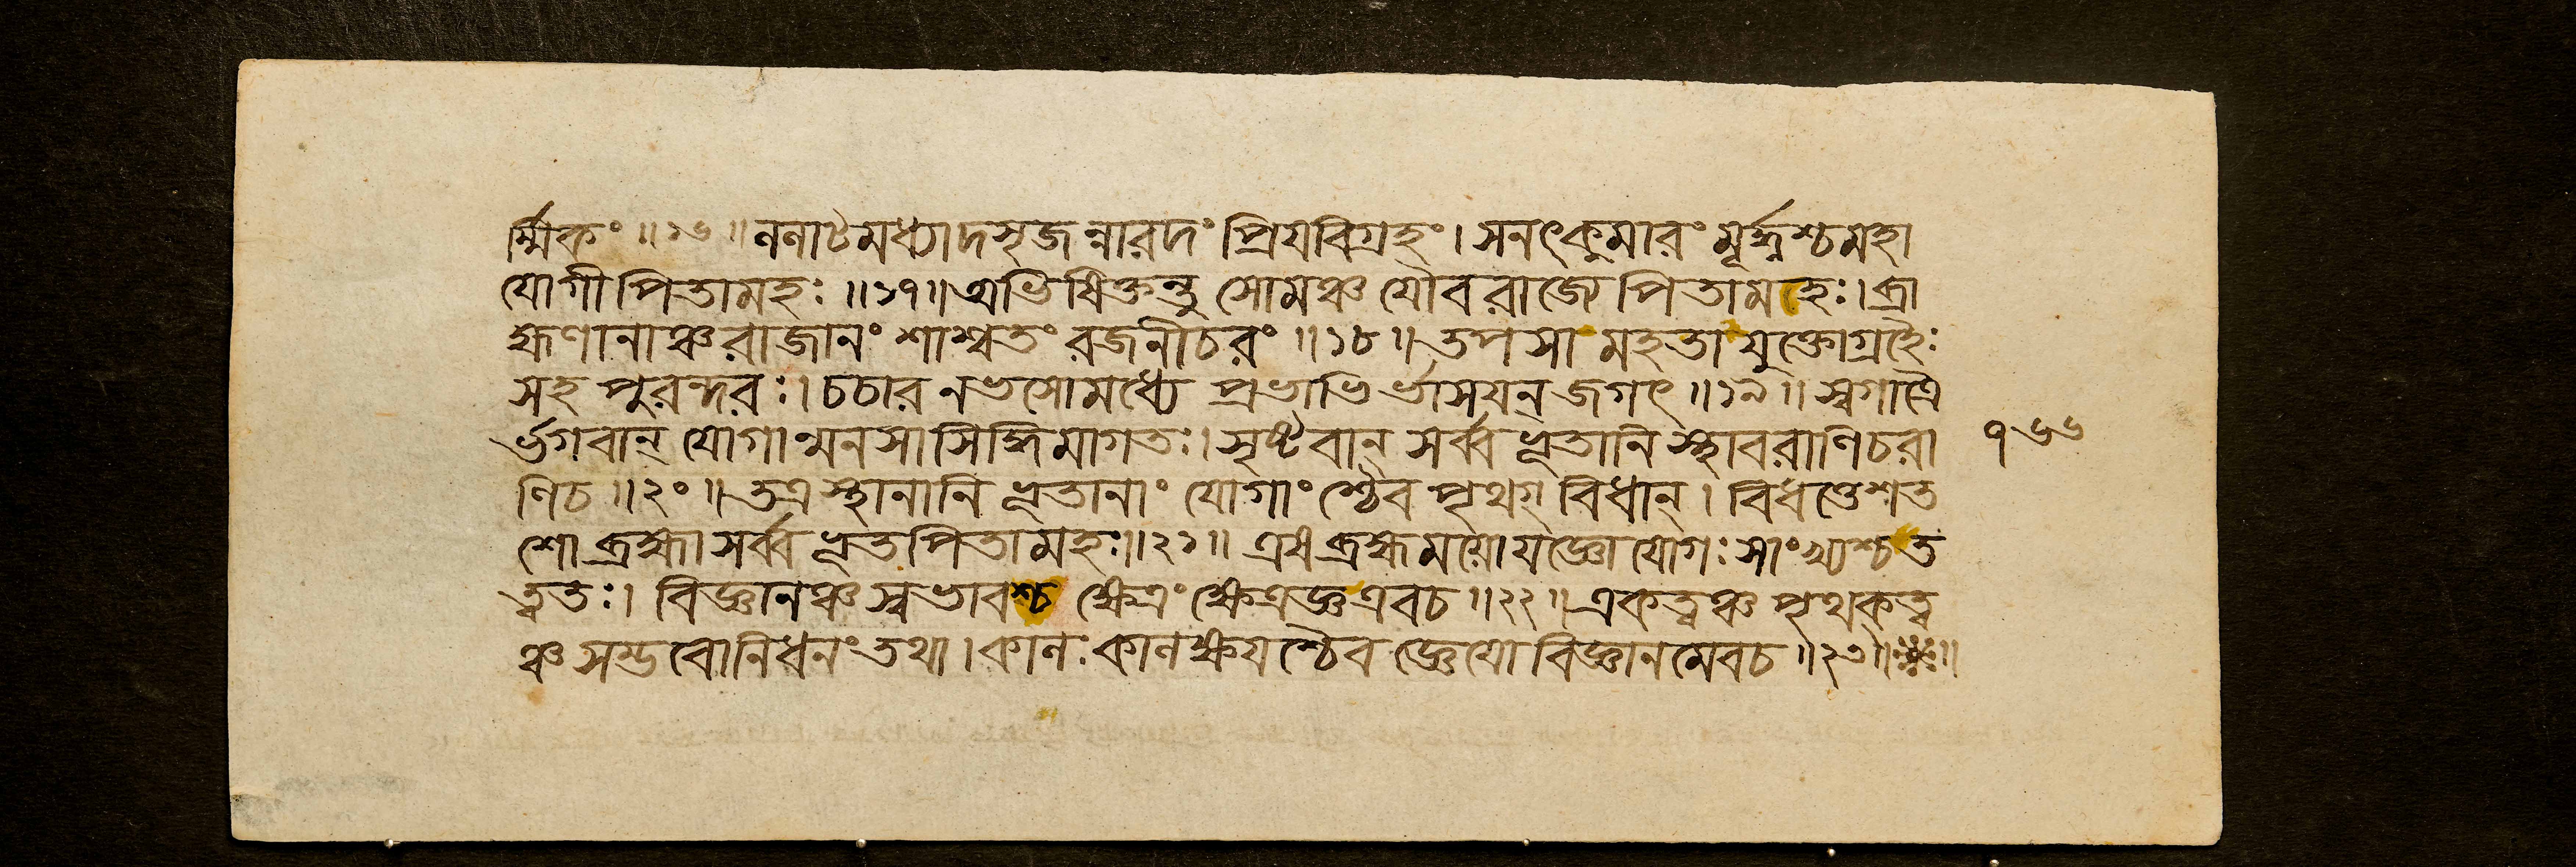 র্ম্মিকং ॥১৬॥ ললাটমধ্যাদসৃজন্নারদং প্রিযবিগ্রহং। সনৎকুমারং মূর্দ্ধ্নশ্চমহা
যোগী পিতামহঃ ॥১৭॥ অভিষিক্তন্তু সোমঞ্চ যৌবরাজ্যে পিতামহঃ। ব্রা
হ্মণানাঞ্চ রাজানং শাশ্বতং রজনীচরং ॥১৮॥ তপসা মহতা যুক্তোগ্রহৈঃ
সহ পুরন্দরঃ। চচার নভসোমধ্যে প্রভাভির্ভাসযন্ জগৎ ॥১৯॥ স্বগাত্রৈ
র্ভগবান্ যোগান্মনসা সিদ্ধিমাগতঃ। সৃষ্টবান্ সর্ব্বভূতানি স্থাবরাণিচরা
৭৬৬
ণিচ ॥২০॥ তত্র স্থানানি ভূতানাং যোগাংশ্চৈব পৃথগ্ বিধান্। বিধত্তেশত
শো ব্রহ্মা সর্ব্বভূতপিতামহঃ॥২১॥ এষব্রহ্মময়োযজ্ঞো যোগঃ সাংখ্যশ্চত
ত্ত্বতঃ। বিজ্ঞানঞ্চ স্বভাবশ্চ ক্ষেত্রং ক্ষেত্রজ্ঞ এবচ ॥২২॥ একত্বঞ্চ পৃথকত্ব
ঞ্চ সম্ভবোনিধনং তথা। কালঃ কালক্ষযশ্চৈব জ্ঞেযো বিজ্ঞানমেবচ ॥২৩॥